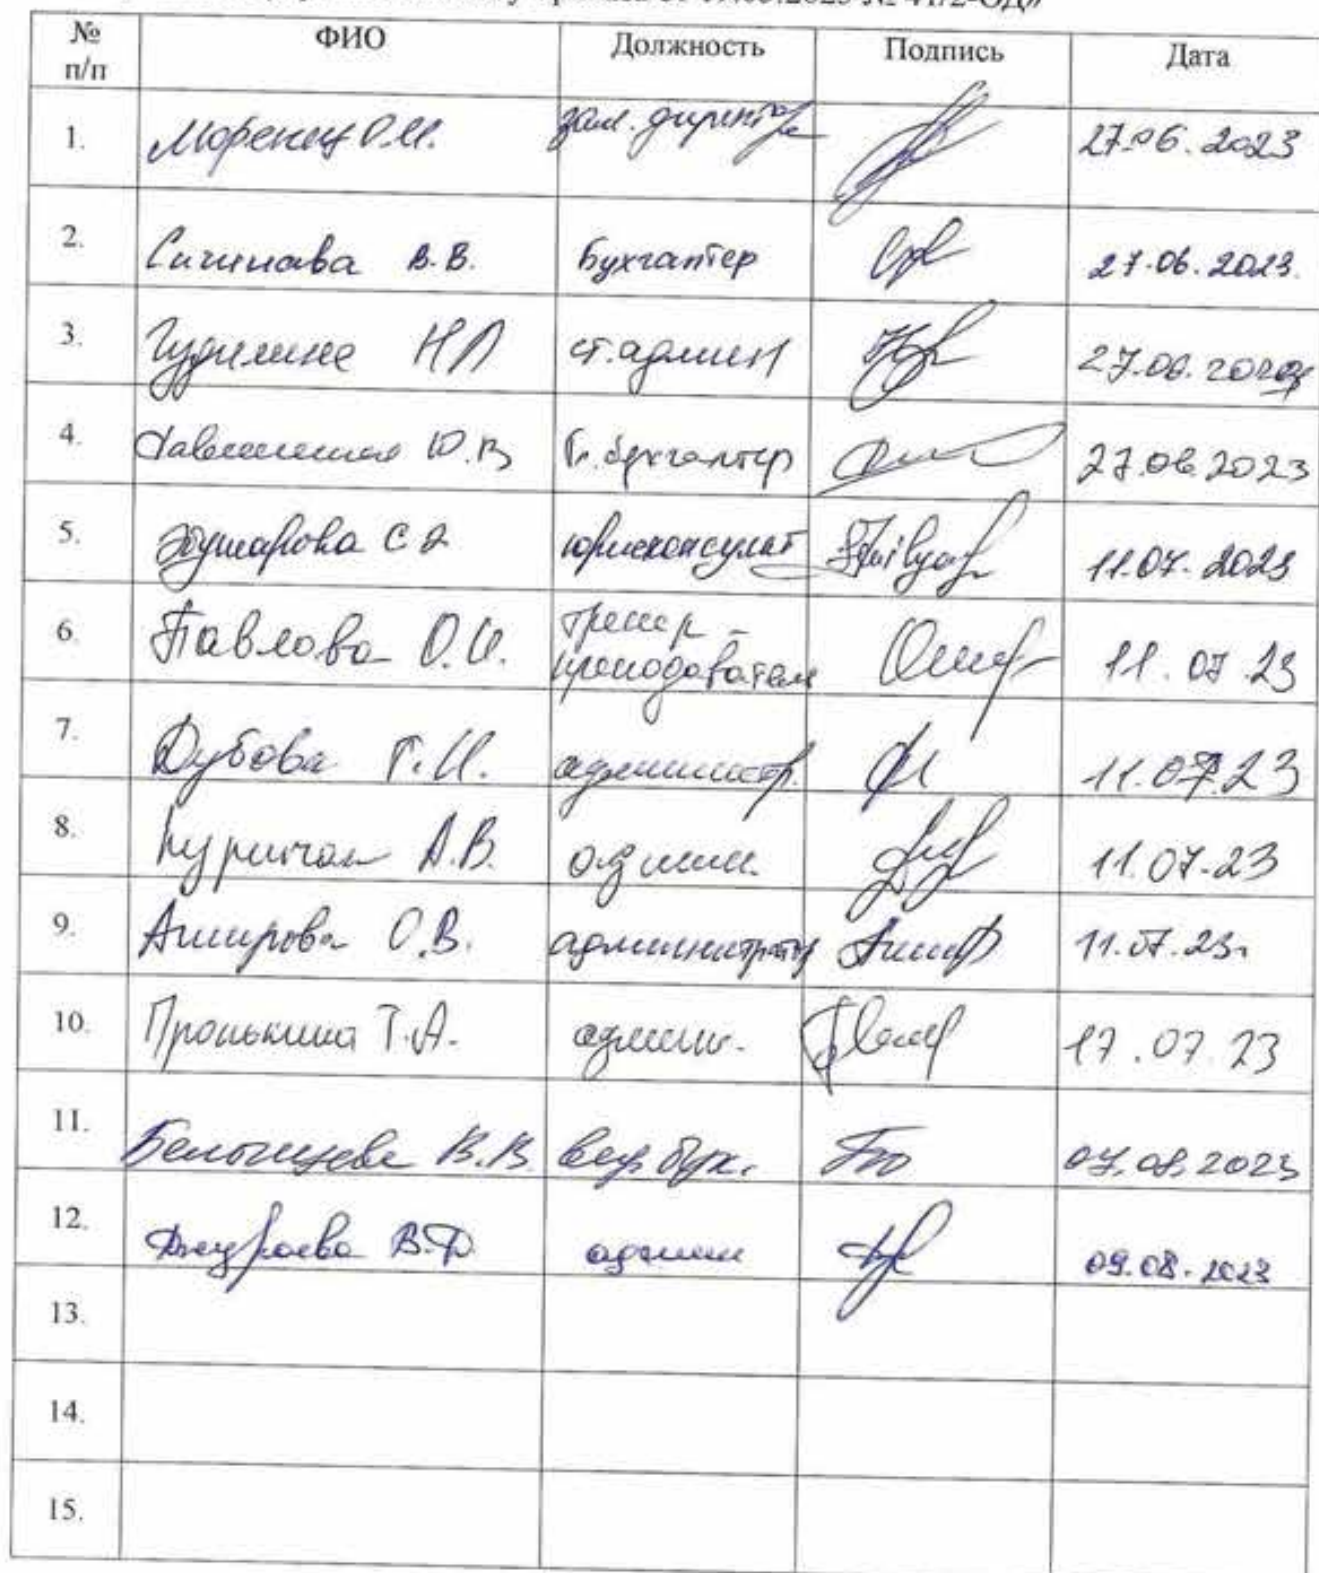 № 41/2-ОД»
№ п/п ФИО Должность Подпись Дата
1. Моренец О.И. зам. директора 27.06.2023
2. Сичинава В.В. Бухгалтер 27.06.2023.
3. Н Л ст.админ 27.06.
4. Ю.В Гл. бухгалтер 27.06.2023
5. С Э юрисконсульт 11.07.2023
6. Павлова О.И. тренер -
преподаватель 11.07.23
7. Дубова Г.И. администр. 11.07.23
8. А.В. админ. 11.07.23
9. Аширова О.В. администратор 11.07.23г
10. Пронькина Т.А. админ. 17.07.23
11. В.В вед. бух. 07.08.2023
12. Джураева В.Ф админ 09.08.2023
13.
14.
15.